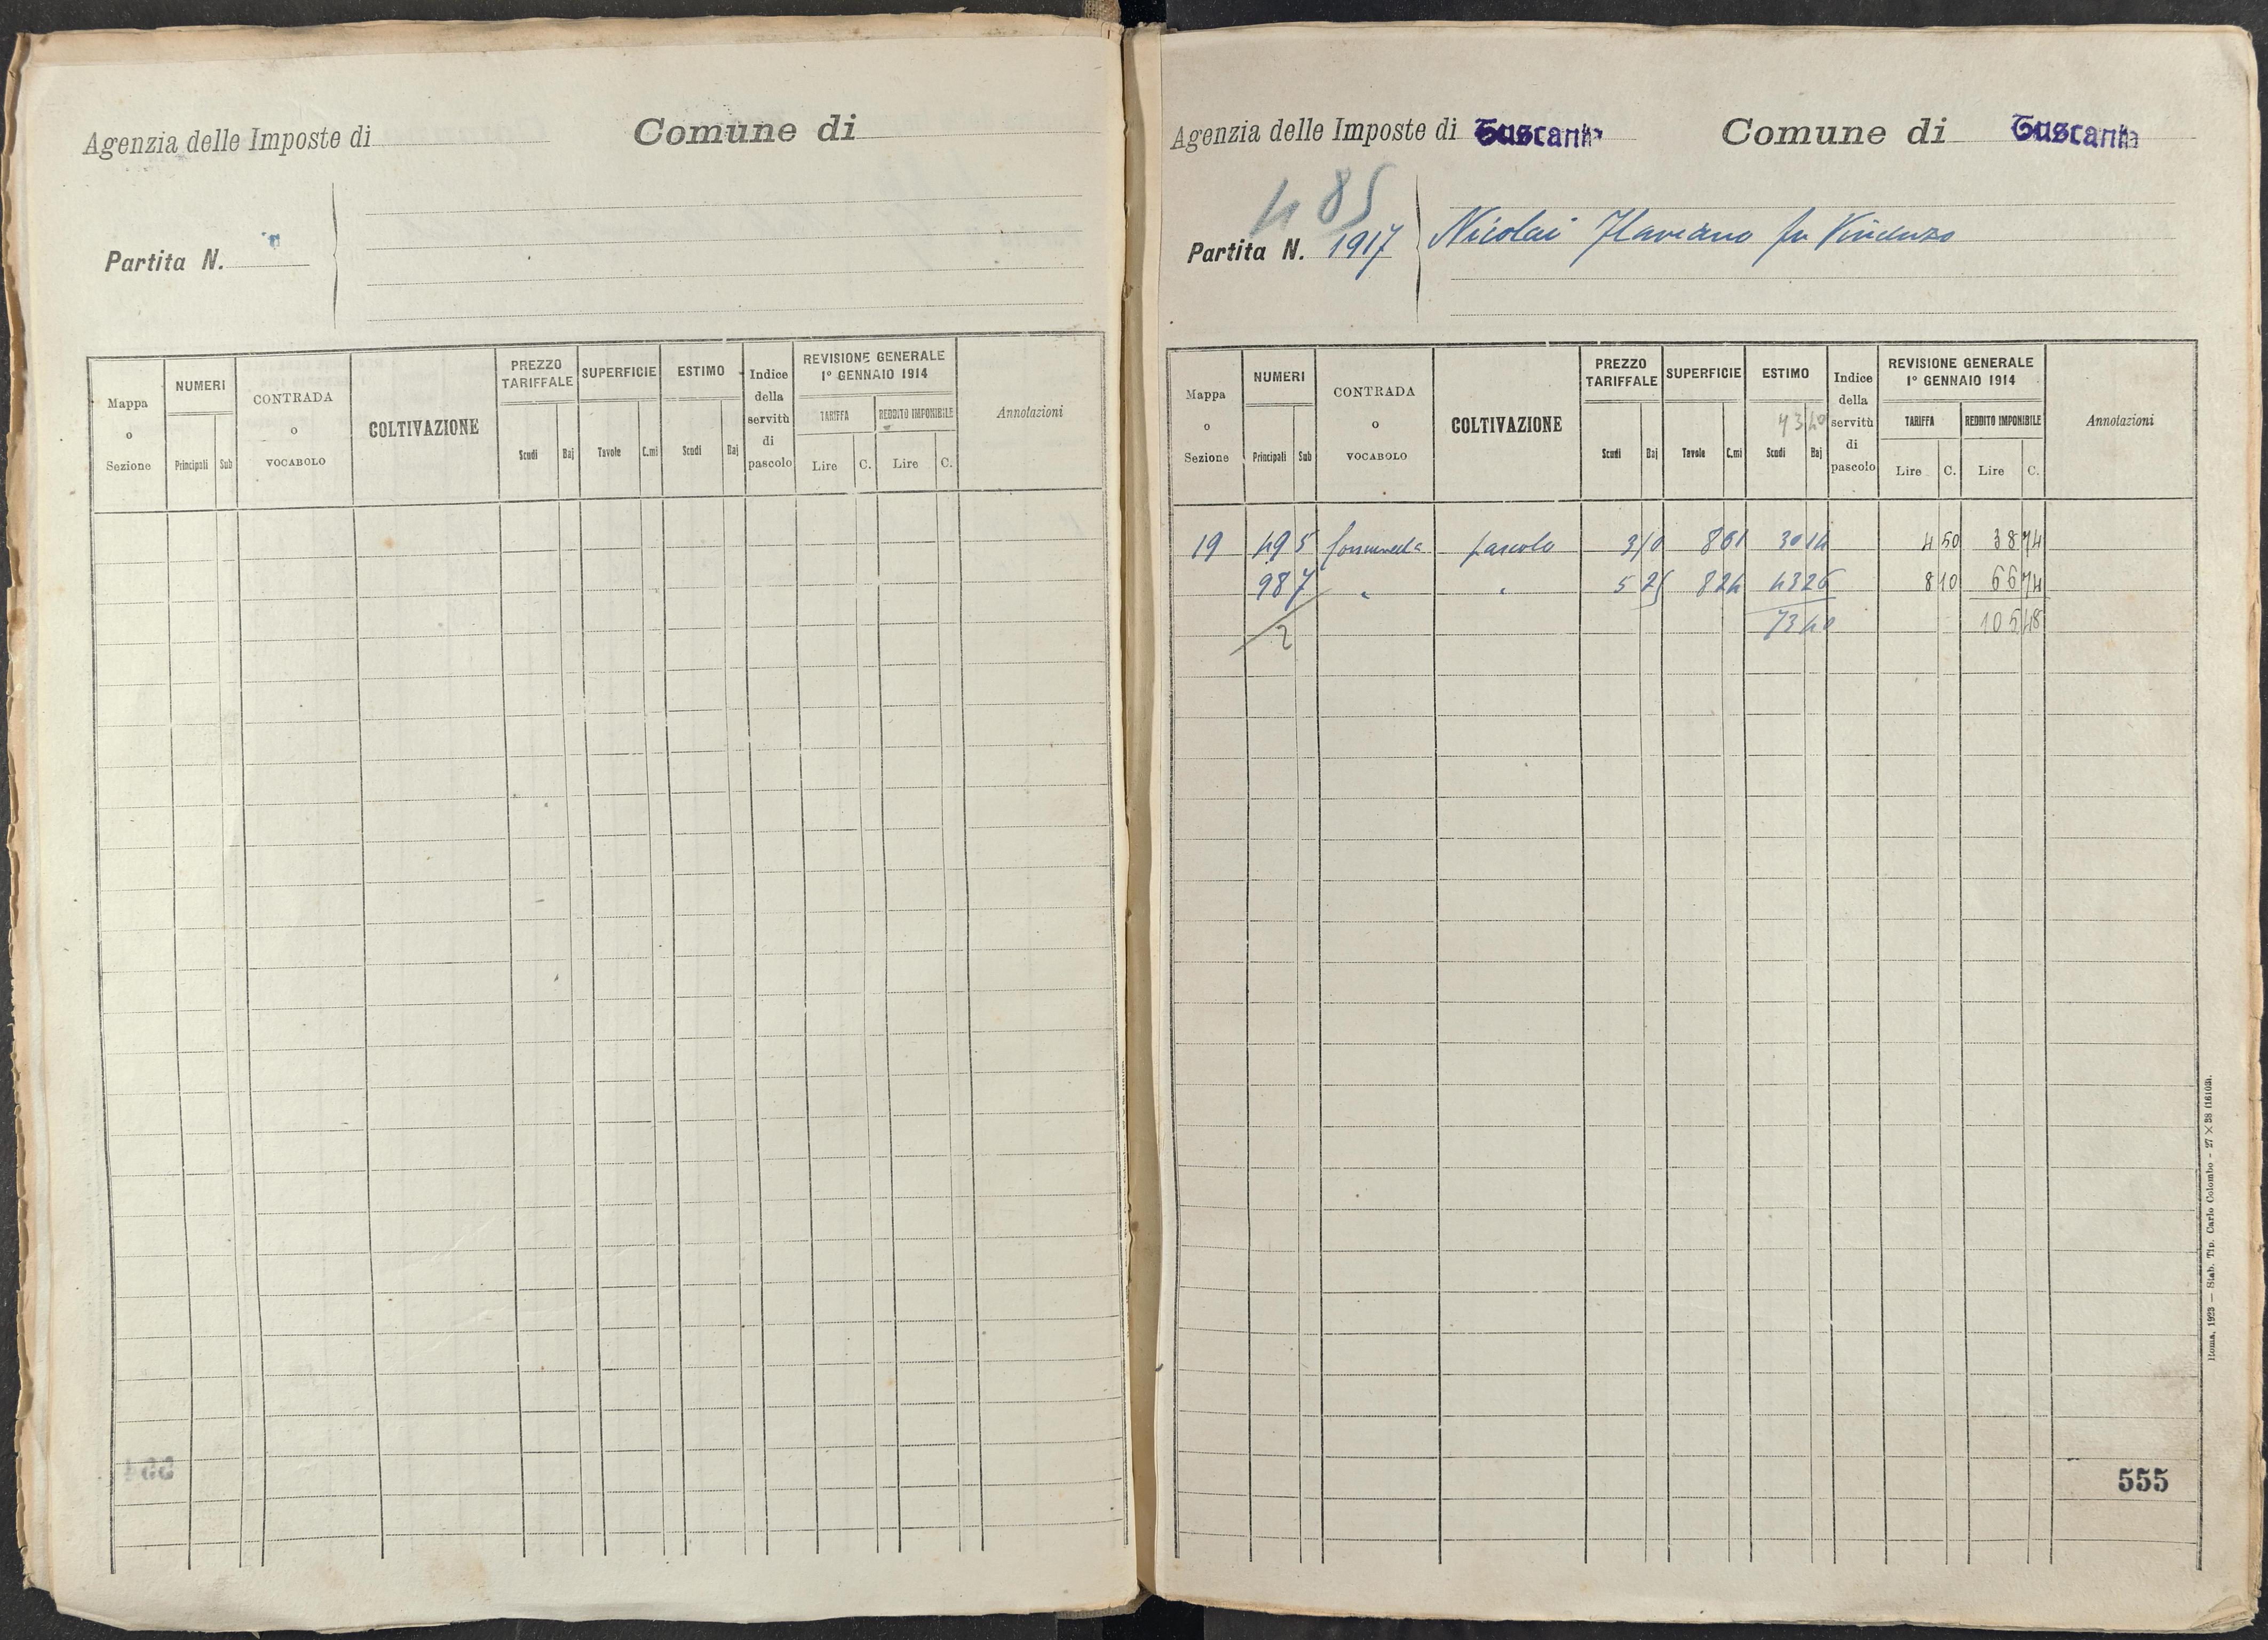 Agenzia delle Imposte di
Comune di
Partita N.
Mappa o Sezione
NUMERI
Principali
Sub
CONTRADA o VOCABOLO
COLTIVAZIONE
PREZZO TARIFFALE
Scudi
Baj
SUPERFICIE
Tavole
C.mi
ESTIMO
Scudi
Baj
Indice della servitù di pascolo
REVISIONE GENERALE
1º GENNAIO 1914
TARIFFA
REDDITO IMPONIBILE
Lire
C.
Lire
C.
Annotazioni
Agenzia delle Imposte di Tuscania
Comune di Tuscania
485
Partita N. 1917
Nicolai Flaviano fu Vincenzo
Mappa o Sezione
NUMERI
Principali
Sub
CONTRADA o VOCABOLO
COLTIVAZIONE
PREZZO TARIFFALE
Scudi
Baj
SUPERFICIE
Tavole
C.mi
ESTIMO
73 40
Scudi
Baj
Indice della servitù di pascolo
REVISIONE GENERALE
1º GENNAIO 1914
TARIFFA
REDDITO IMPONIBILE
Lire
C.
Lire
C.
Annotazioni
19 495 pascolo 861 30 14 4 50 38 74
987 " " 5 25 824 43 26 8 10 66 74
2 73 40 105 48
555
Roma, 1923 — Stab. Tip. Carlo Colombo - 27 × 38